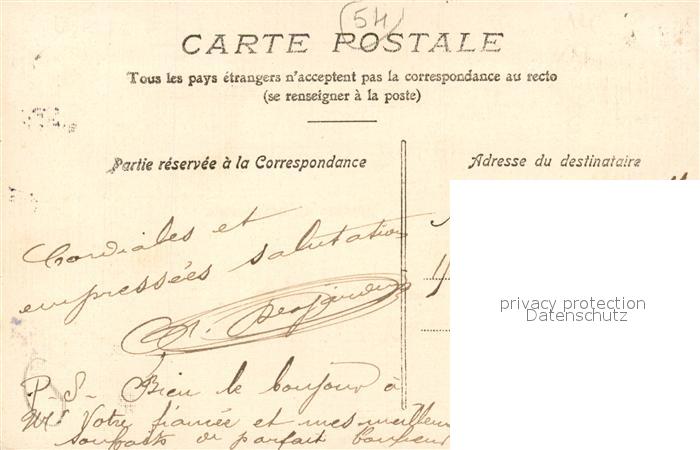 54
CARTE POSTALE
Tous les pays étrangers n'acceptent pas la correspondance au recto
(se renseigner à la poste)
Partie réservée à la Correspondance
Adresse du destinataire
Cordiales et
empressées salutations
Desjardins
privacy protection
Datenschutz
P.-S.- Bien le bonjour à
Votre fiancée et mes meilleurs
souhaits de parfait bonheur